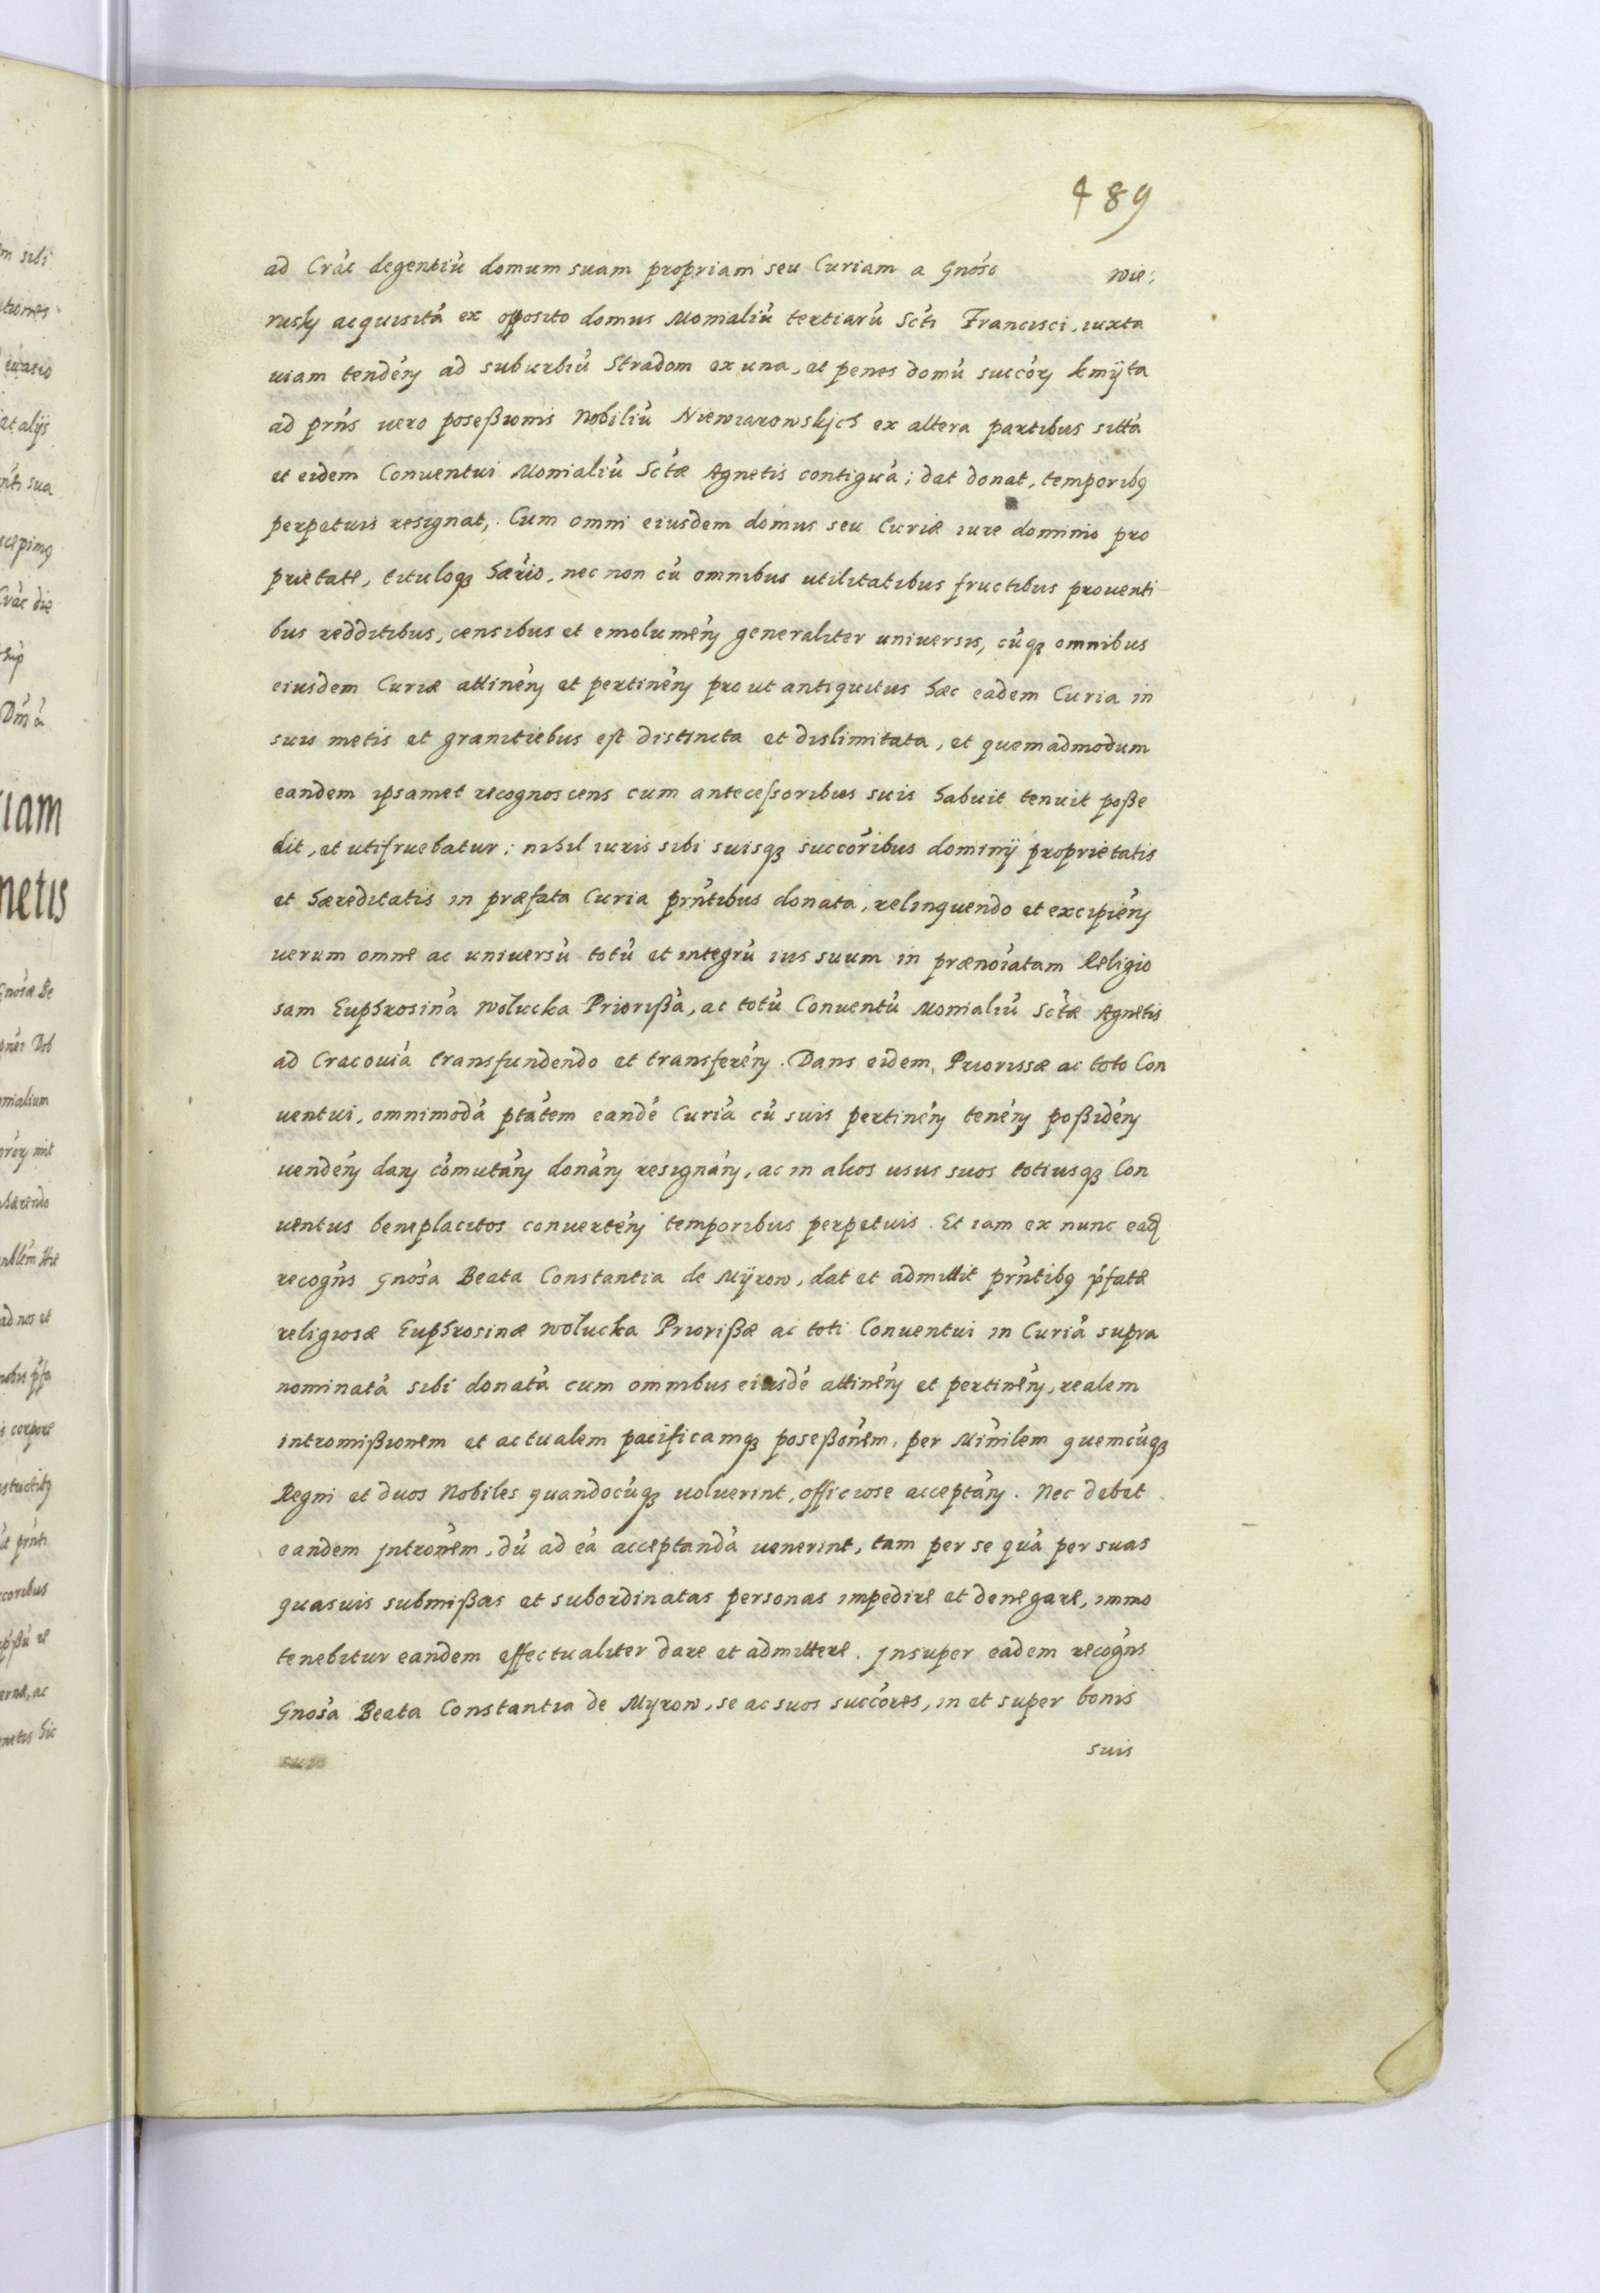 489
ad Crac̃ degentiũ domum suam propriam seu Curiam a Gnoso Wie:
rusky acquisitã ex opposito domus Monialiũ tertiarũ Scti Francisci, iuxta
uiam tendeñ ad suburbiũ Stradom ex una, et penes domũ succorũ Kmÿta
ad prñs uero poseßionis Nobiliũ Niewiarowskich ex altera partibus sittã
et eidem Conuentui Monialiũ Sctæ Agnetis contiguã; dat donat, temporibq
perpetuis resignat, Cum omni eiusdem domus seu Curiæ iure dominio pro
prietate, tituloqз hærio, nec non cũ omnibus utilitatibus fructibus prouenti
bus redditibus, censibus et emolumeñ generaliter uniuersis, cũqз omnibus
eiusdem Curiæ attineñ et pertineñ prout antiquitus hæc eadem Curia in
suis metis et granitiebus est distincta et dislimitata, et quemadmodum
eandem ipsamet recognoscens cum antecessoribus suis habuit tenuit poße
dit, et utifruebatur; nihil iuris sibi suisqз succoribus dominij proprietatis
et hæreditatis in præfata Curia prñtibus donata, relinquendo et excipieñ
uerum omne ac uniuersũ totũ et integrũ ius suum in prænoiatam Religio
sam Euphrosinã Wolucka Priorißã, ac totũ Conuentũ Monialiũ Sctæ Agnetis
ad Cracouiã transfundendo et transfereñ. Dans eidem, Priorissæ ac toto Con
uentui, omnimodã ptãtem eandẽ Curiã cũ suis pertineñ teneñ poßideñ
uendeñ dañ cõmutañ donañ resignañ, ac in alios usus suos totiusqз Con
uentus beneplacitos conuerteñ temporibus perpetuis. Et iam ex nunc eadq
recogñs Gnosa Beata Constantia de Mÿrow, dat et admittit prñtibq pfatæ
religiosæ Euphrosinæ Wolucka Priorißæ ac toti Conuentui in Curiã supra
nominatã sibi donatã cum omnibus eiusdẽ attineñ et pertineñ, realem
intromißionem et actualem pacificamqз poseßonem, per Minilem quemcũqз
Regni et duos Nobiles quandocũqз uoluerint, officiose acceptañ. Nec debet
eandem Intronem, dũ ad eã acceptandã uenerint, tam per se quã per suas
quasuis submißas et subordinatas personas impedire et denegare, immo
tenebitur eandem effectualiter dare et admittere. Insuper eadem recogñs
Gnosa Beata Constantia de Myrow, se ac suos succores, in et super bonis
suis